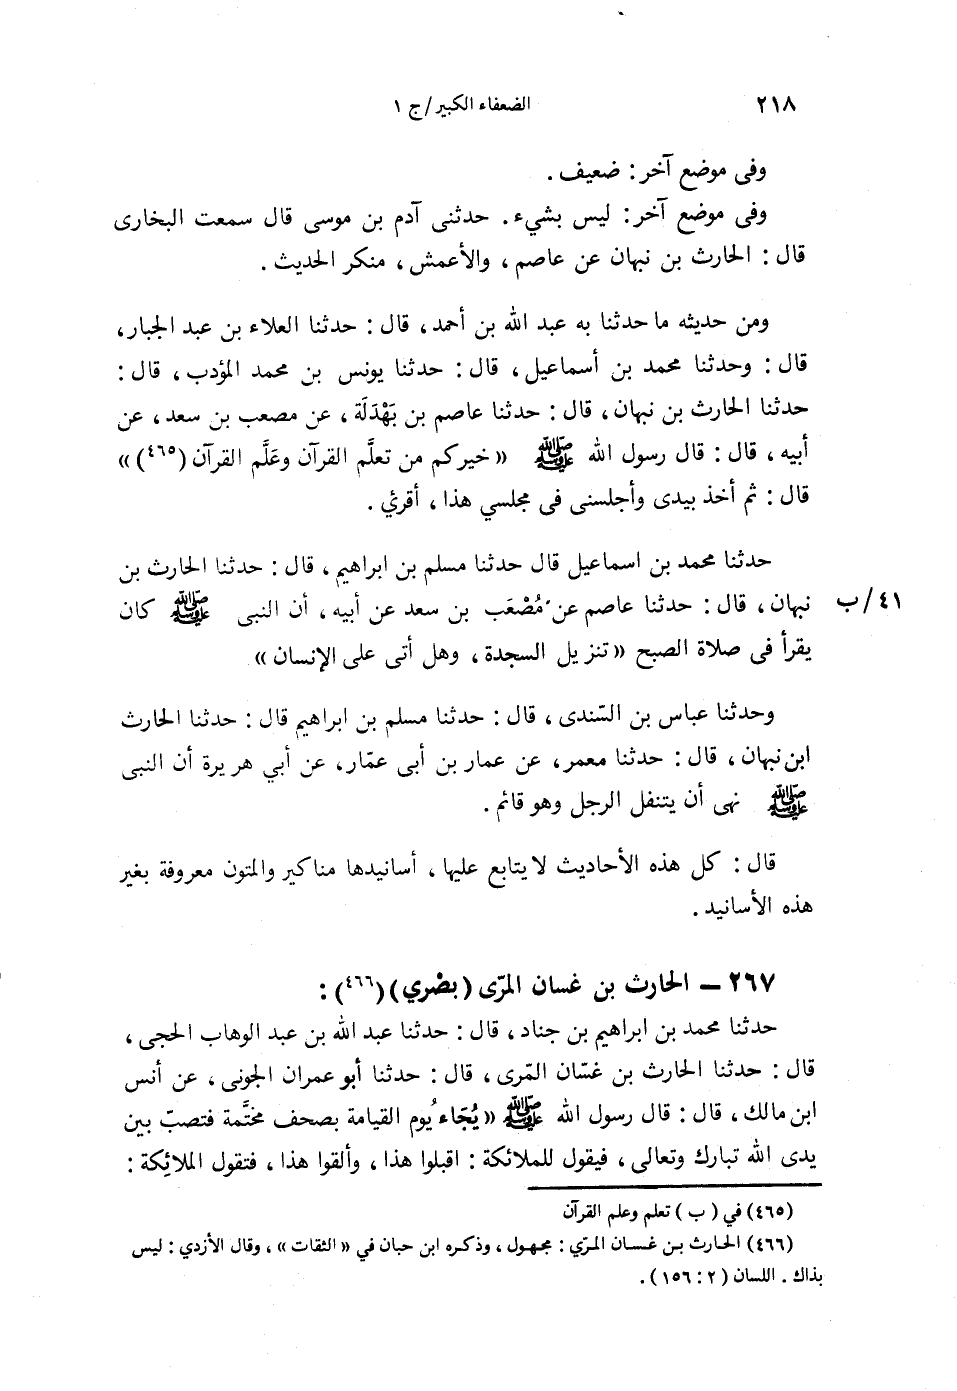 ٢١٨
الضعفاء الكبير/ج ١
وفى موضع آخر: ضعيف.
وفى موضع آخر: ليس بشيء. حدثنى آدم بن موسى قال سمعت البخارى
قال: الحارث بن نبهان عن عاصم، والأعمش، منكر الحديث.
ومن حديثه ما حدثنا به عبد الله بن أحمد، قال: حدثنا العلاء بن عبد الجبار،
قال: وحدثنا محمد بن أسماعيل، قال: حدثنا يونس بن محمد المؤدب، قال:
حدثنا الحارث بن نبهان، قال: حدثنا عاصم بن بَهْدَلَة، عن مصعب بن سعد، عن
أبيه، قال: قال رسول الله ﷺ «خيركم من تعلَّم القرآن وعَلَّم القرآن(٤٦٥)»
قال: ثم أخذ بيدى وأجلسنى فى مجلسي هذا، أقرئ.
حدثنا محمد بن اسماعيل قال حدثنا مسلم بن ابراهيم، قال: حدثنا الحارث بن
نبهان، قال: حدثنا عاصم عن مُصْعَب بن سعد عن أبيه، أن النبى ﷺ كان
٤١/ب
يقرأ فى صلاة الصبح «تنزيل السجدة، وهل أتى على الإنسان»
وحدثنا عباس بن السّندى، قال: حدثنا مسلم بن ابراهيم قال: حدثنا الحارث
ابن نبهان، قال: حدثنا معمر، عن عمار بن أبى عمّار، عن أبي هريرة أن النبى
ﷺ نهى أن يتنفل الرجل وهو قائم.
قال: كل هذه الأحاديث لا يتابع عليها، أسانيدها مناكير والمتون معروفة بغير
هذه الأسانيد.
٢٦٧ – الحارث بن غسان المرّى (بصْري)(٤٦٦):
حدثنا محمد بن ابراهيم بن جناد، قال: حدثنا عبد الله بن عبد الوهاب الحجى،
قال: حدثنا الحارث بن غسّان المّرى، قال: حدثنا أبو عمران الجونى، عن أنس
ابن مالك، قال: قال رسول الله ﷺ «يُجَاء يُوم القيامة بصحف مختَّمة فتصبّ بين
يدى الله تبارك وتعالى، فيقول للملائكة: اقبلوا هذا، وألقوا هذا، فتقول الملائِكة:
(٤٦٥) في (ب) تعلم وعلم القرآن
(٤٦٦) الحارث بن غسان المرّي: مجهول، وذكره ابن حبان في «الثقات»، وقال الأزدي: ليس
بذاك. اللسان (٢: ١٥٦).